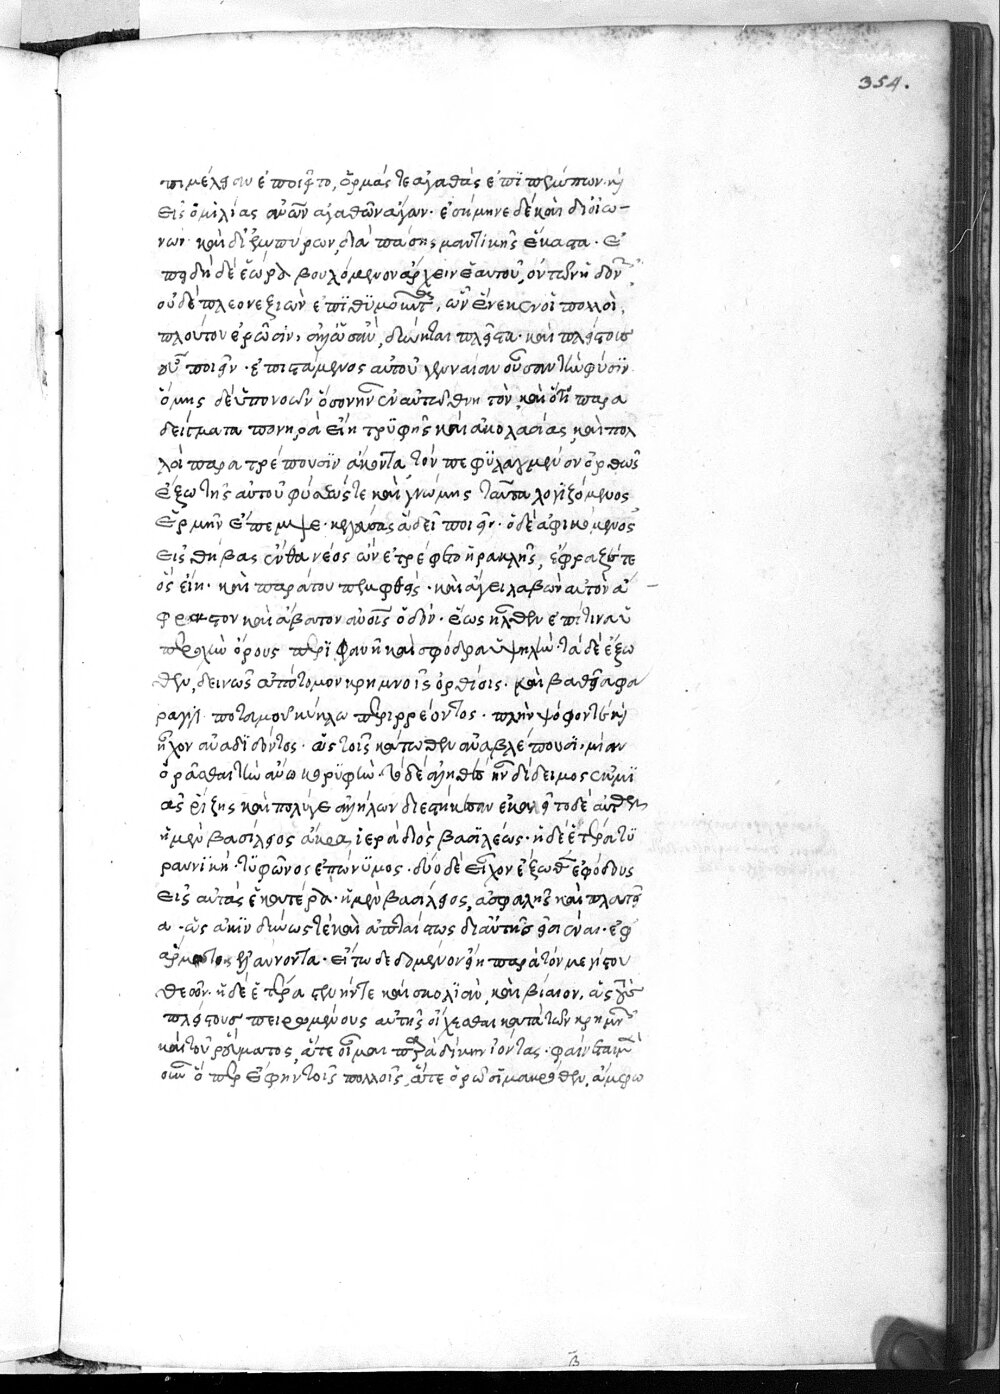 354.
πιμέλειαν ἐποιεῖτο, ὁρμάς τε ἀγαθὰς ἐπὶ πρώτων καὶ
εἰς ὁμιλίας ἀνδρῶν ἀγαθῶν ἄγων· ἐσήμηνε δὲ καὶ δι' οἰω-
νῶν καὶ δι' ἐμπύρων, διὰ πάσης μαντικῆς ἕκαστα· ἐ
πειδὴ δὲ ἑώρα βουλόμενον ἄρχειν ἑαυτοῦ, οὐ τῶν ἡδονῶν
οὐδὲ πλεονεξιῶν ἐπιθυμοῦντα, ὧν ἕνεκεν οἱ πολλοὶ
πλούτου ἐρῶσιν, ἀλλ' ὡς ἂν δύνηται πλεῖστα καὶ πλείστους
εὖ ποιεῖν· ἐπιστάμενος αὐτοῦ γενναίαν οὖσαν τὴν φύσιν
ὅμως δὲ ὑπονοῶν ὅσον ἦν ἐν αὐτῷ θνητὸν, καὶ ὅτι παρα
δείγματα πονηρὰ εἴη τρυφῆς καὶ ἀκολασίας, καὶ πολ
λοὶ παρατρέπουσιν ἄκοντα τὸν πεφυλαγμένον ὀρθῶς
ἔξω τῆς αὐτοῦ φύσεώς τε καὶ γνώμης ταῦτα λογιζόμενος
Ἑρμῆν ἔπεμψε· κελεύσας ἃ δεῖ ποιεῖν· ὁ δὲ ἀφικόμενος
εἰς θήβας ἔνθα νέος ὢν ἐτρέφετο ἡρακλῆς, ἔφραζέ τε
ὃς εἴη· καὶ παρὰ του πεμφθεὶς· καὶ ἄγει λαβὼν αὐτὸν ἄ
φραστον καὶ ἄβατον ἀνθρώποις ὁδόν· ἕως ἦλθεν ἐπί τινα ὑ
περοχὴν ὄρους περιφανῆ καὶ σφόδρα ὑψηλὴν· τὰ δὲ ἔξω
θεν, δεινῶς ἀπότομον κρημνοῖς ὀρθίοις· καὶ βαθείᾳ φά
ραγγι ποταμοῦ κύκλῳ περιρρέοντος· πολὺν ψόφον τε καὶ
ἦχον ἀναδιδόντος· ὡς τοῖς κάτωθεν ἀναβλέπουσι, μίαν
ὁρᾶσθαι τὴν ἄνω κορυφὴν· τὸ δὲ ἀληθὲς ἦν δίδυμος ἐκ μι
ᾶς ῥίζης καὶ πολύ γε ἀλλήλων διεστήκεσαν ἐκαλεῖτο δὲ αὐτῶν
ἡ μὲν βασίλειος ἄκρα ἱερὰ διὸς βασιλέως· ἡ δὲ ἑτέρα τυ
ραννικὴ τυφῶνος ἐπώνυμος· δύο δὲ εἶχον ἔξωθεν ἐφόδους
εἰς αὐτὰς ἑκατέρα· ἡ μὲν βασίλειος, ἀσφαλὴς καὶ πλατεῖ
α· ὡς ἀκινδύνως τε καὶ ἀπταίστως δι' αὐτῆς εἰσιέναι· ἐφ
ἅρματος ἐλαύνοντα· εἴ τῳ δεδομένον εἴη παρὰ τοῦ μεγίστου
θεῶν· ἡ δὲ ἑτέρα στενή τε καὶ σκολιὰν, καὶ βίαιον, ὡς τοὺς
πλείστους πειρωμένους αὐτῆς οἴχεσθαι κατὰ τῶν κρημνῶν
καὶ τοῦ ῥεύματος, ἅτε οἶμαι παρὰ δίκην ἰόντας· φαίνεται μὲν
οὖν ὅπερ ἔφην τοῖς πολλοῖς, ἅτε ὁρῶσι μακρόθεν, ἄμφω